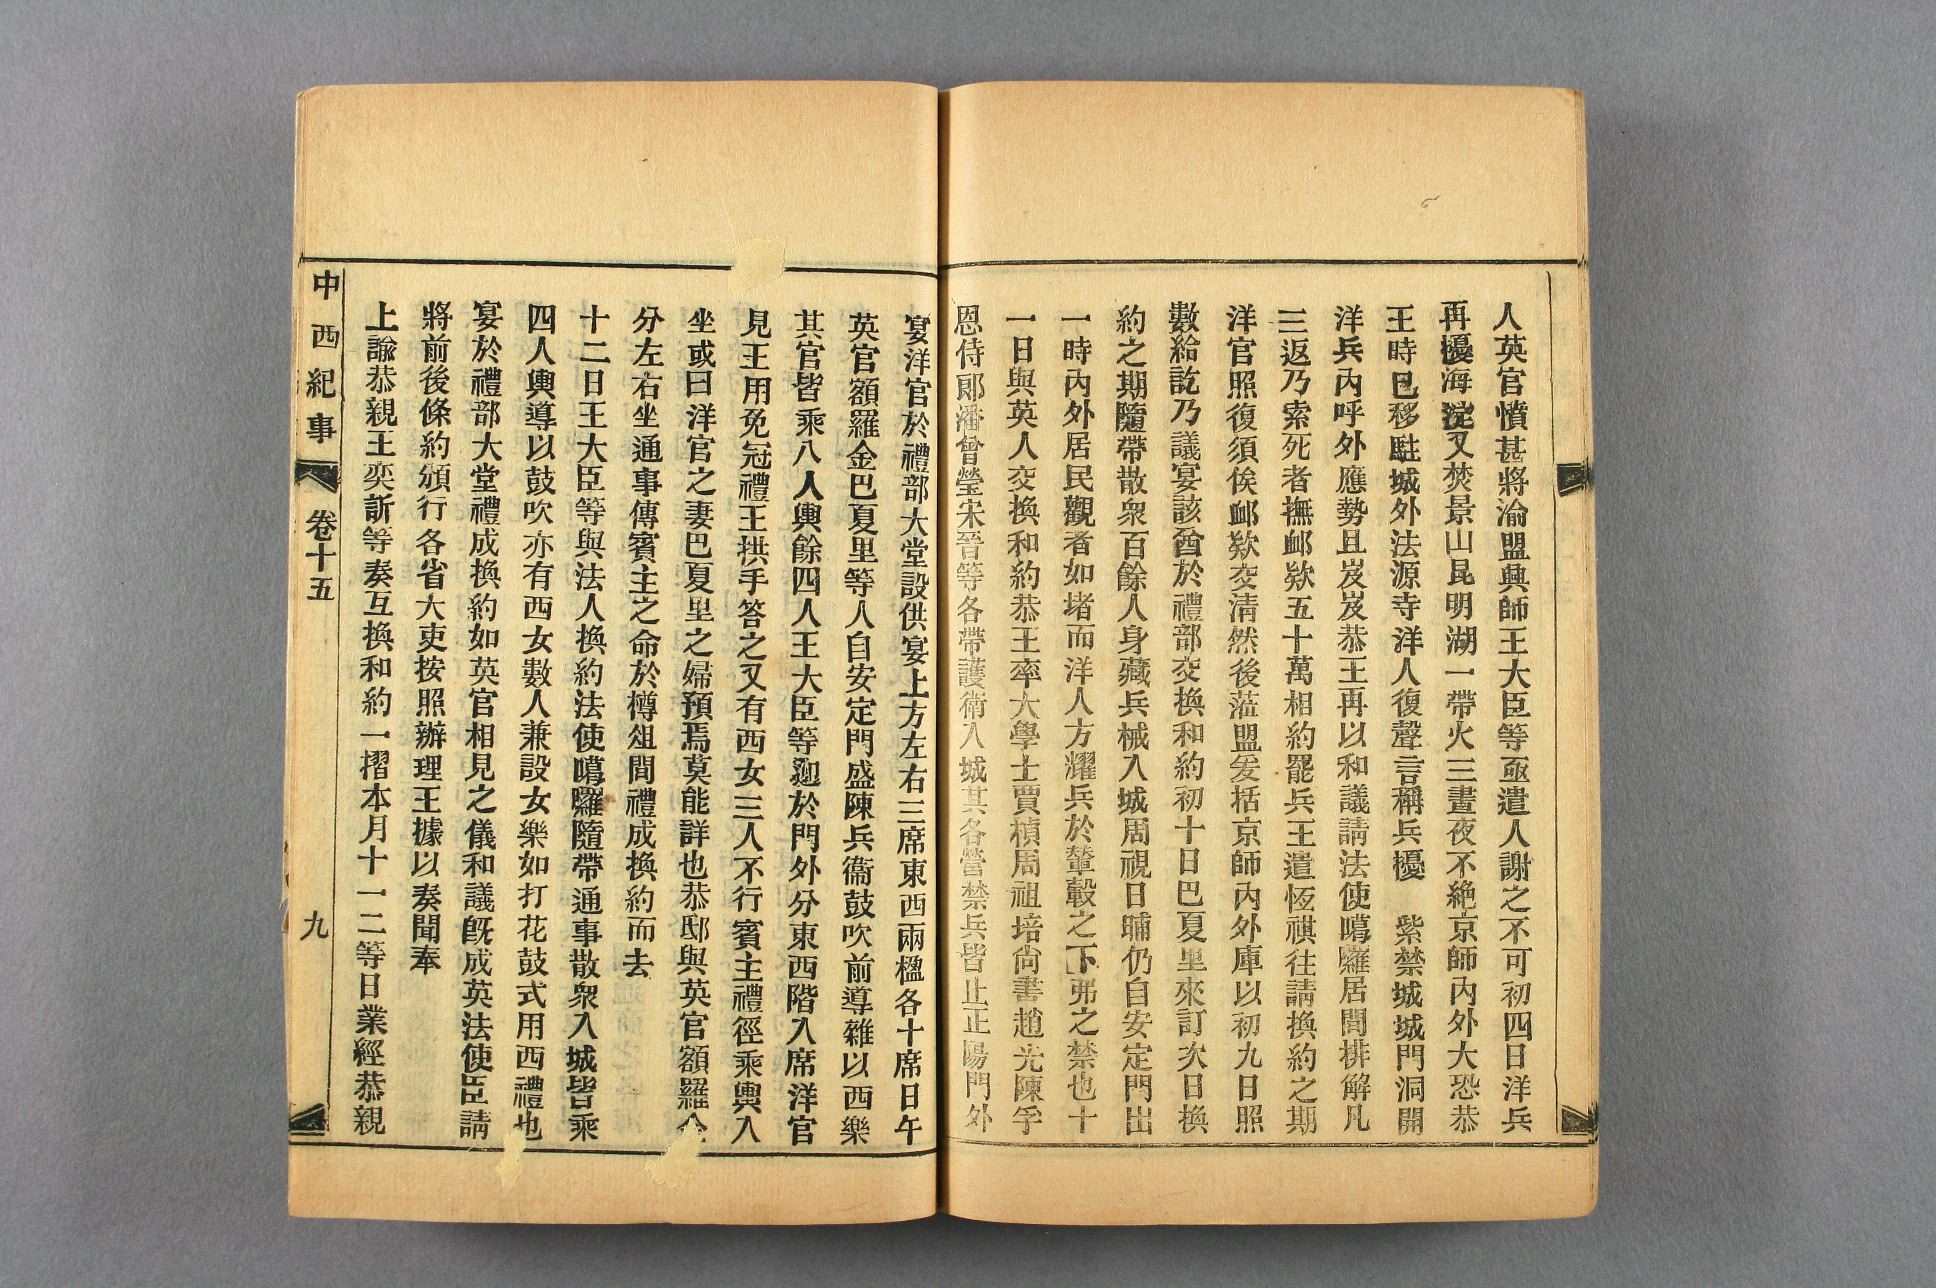 人英官憤甚將渝盟興師王大臣等亟遣人謝之不可初四日洋兵
再擾海淀又焚景山昆明湖一帶火三晝夜不絶京師內外大恐恭
王時已移駐城外法源寺洋人復聲言稱兵擾　紫禁城城門洞開
洋兵內呼外應勢且岌岌恭王再以和議請法使噶囉居間排解凡
三返乃索死者撫衈欵五十萬相約罷兵王遣恆祺往請換約之期
洋官照復須俟衈欵交清然後蒞盟爰括京師內外庫以初九日照
數給訖乃議宴該酋於禮部交換和約初十日巴夏里來訂次日換
約之期隨帶散衆百餘人身藏兵械入城周視日晡仍自安定門出
一時內外居民觀者如堵而洋人方耀兵於輦轂之下弗之禁也十
一日與英人交換和約恭王率大學士賈楨周祖培尙書趙光陳孚
恩侍郞潘曾瑩宋晉等各帶護衛入城其各營禁兵皆止正陽門外
宴洋官於禮部大堂設供宴上方左右三席東西兩楹各十席日午
英官額羅金巴夏里等人自安定門盛陳兵衞鼓吹前導雜以西樂
其官皆乘八人輿餘四人王大臣等迎於門外分東西階入席洋官
見王用免冠禮王拱手答之又有西女三人不行賓主禮徑乘輿入
坐或曰洋官之妻巴夏里之婦預焉莫能詳也恭邸與英官額羅金
分左右坐通事傳賓主之命於樽俎間禮成換約而去
十二日王大臣等與法人換約法使噶囉隨帶通事散衆入城皆乘
四人輿導以鼓吹亦有西女數人兼設女樂如打花鼓式用西禮也
宴於禮部大堂禮成換約如英官相見之儀和議旣成英法使臣請
將前後條約頒行各省大吏按照辦理王據以奏聞奉
上諭恭親王奕訢等奏互換和約一摺本月十一二等日業經恭親
中西紀事　卷十五　九